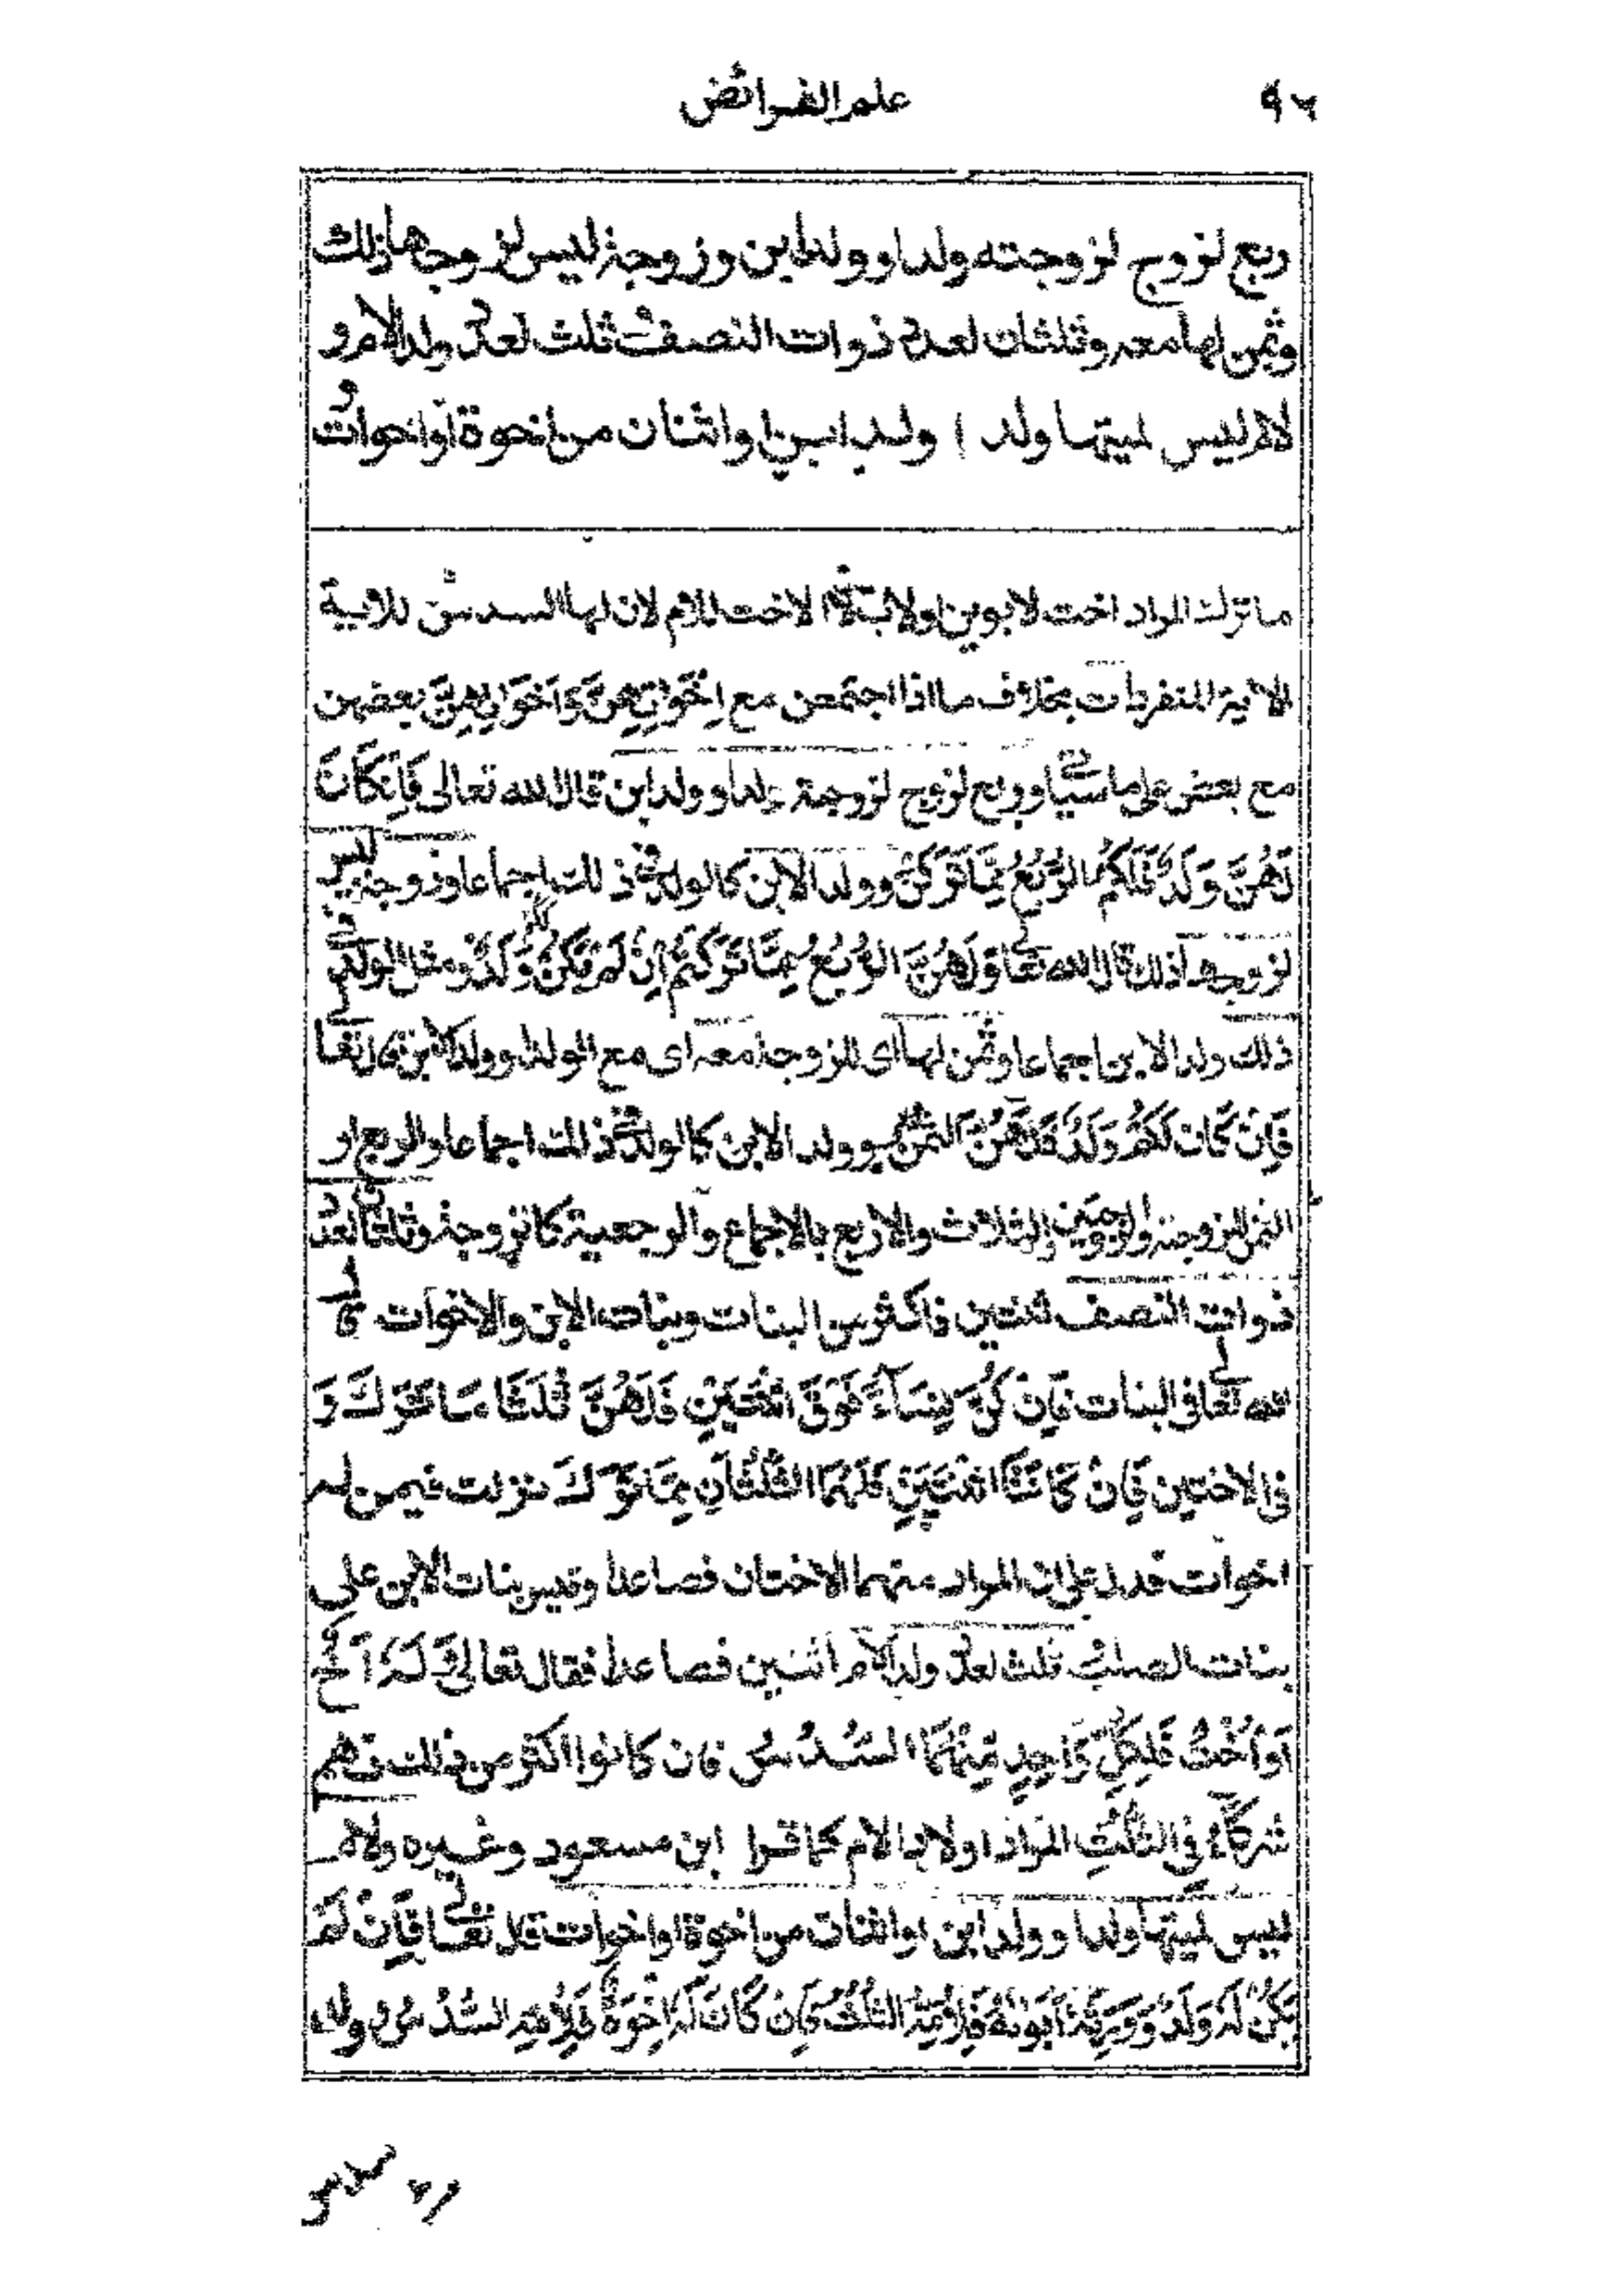 ٩٢ علم الفرائض
وربع لزوج لزوجته ولد او ولد ابن وزوجة ليس لزوجها ذلك
وثمن لها معه وثلثان لعدد ذوات النصف ثلث لعدد ولد الام و
لام ليس لميتها ولد او ولد ابن او اثنان من اخوة او اخوات
ما ترك المراد اخت لابوين او لاب لا الاخت للام لان لها السدس للآية
الآتية المنفردات بخلاف ما اذا اجتمعن مع اِخْوَتِهِنَّ وَاَخَوَاتِهِنَّ بعضهن
مع بعض على ما سيأتي وربع لزوج لزوجة ولد او ولد ابن قال الله تعالى فَاِنْ كَانَ
لَهُنَّ وَلَدٌ فَلَكُمُ الرُّبُعُ مِمَّا تَرَكْنَ وولد الابن كالولد في ذلك اجماعا وزوجة ليس
لزوجها ذلك قال الله تعالى وَلَهُنَّ الرُّبُعُ مِمَّا تَرَكْتُمْ اِنْ لَمْ يَكُنْ لَكُمْ وَلَدٌ ومثل الولد في
ذلك ولد الابن اجماعا وثمن لها اي للزوجة معه اي مع الولد او ولد الابن قال تعالى
فَاِنْ كَانَ لَكُمْ وَلَدٌ فَلَهُنَّ الثُّمُنُ وولد الابن كالولد في ذلك اجماعا والربع او
الثمن للزوجة والزوجتين والثلاث والاربع بالاجماع والرجعية كالزوجة وثلثان لعدد
ذوات النصف ثنتين فاكثر من البنات وبنات الابن والاخوات قال
الله تعالى في البنات فَاِنْ كُنَّ نِسَآءً فَوْقَ اثْنَتَيْنِ فَلَهُنَّ ثُلُثَا مَا تَرَكَ وَ
في الاختين فَاِنْ كَانَتَا اثْنَتَيْنِ فَلَهُمَا الثُّلُثَانِ مِمَّا تَرَكَ نزلت فيمن له
اخوات فدل على ان المراد منهما الاختان فصاعدا وقيس بنات الابن على
بنات الصلب ثلث لعدد ولد الام اثنين فصاعدا فقال تعالى وَلَهُ اَخٌ
اَوْ اُخْتٌ فَلِكُلِّ وَاحِدٍ مِّنْهُمَا السُّدُسُ فان كانوا اكثر من ذلك فهم
شركَآءُ في الثُّلُثِ المراد اولاد الام كما قرا ابن مسعود وغيره ولام
ليس لميتها ولد او ولد ابن او اثنان من اخوة او اخوات قال تعالى فَاِنْ لَمْ
يَكُنْ لَهُ وَلَدٌ وَوَرِثَهُ اَبَوٰهُ فَلِاُمِّهِ الثُّلُثُ فَاِنْ كَانَ لَهُ اِخْوَةٌ فَلِاُمِّهِ السُّدُسُ وولد